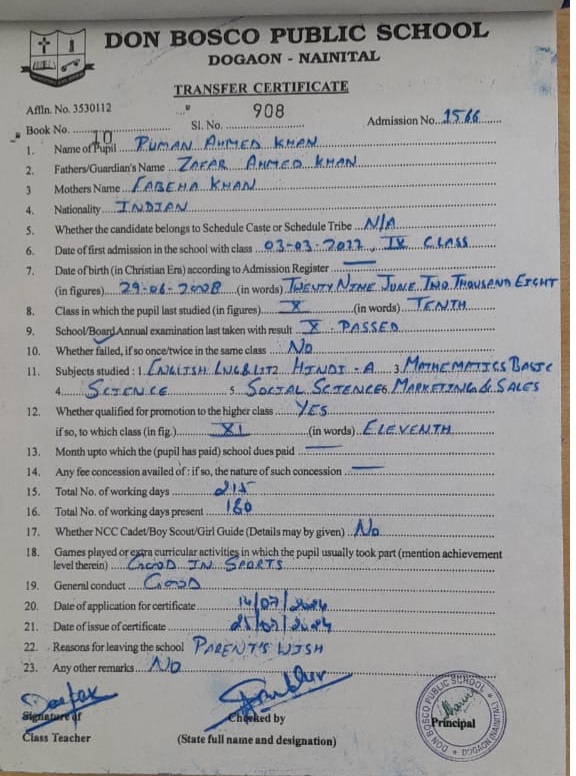 DON BOSCO PUBLIC SCHOOL
DOGAON - NAINITAL
TRANSFER CERTIFICATE
Affln. No. 3530112
Book No. 10 Sl. No. 908 Admission No. 1566
1. Name of Pupil PUMAN AHMED KHAN
2. Fathers/Guardian's Name ZAFAR AHMED KHAN
3 Mothers Name FABEHA KHAN
4. Nationality INDIAN
5. Whether the candidate belongs to Schedule Caste or Schedule Tribe N/A
6. Date of first admission in the school with class 03-03-2022, IX CLASS
7. Date of birth (in Christian Era) according to Admission Register
(in figures) 29-06-2008 (in words) TWENTY NINE JUNE TWO THOUSAND EIGHT
8. Class in which the pupil last studied (in figures) X (in words) TENTH
9. School/Board Annual examination last taken with result X PASSED
10. Whether failed, if so once/twice in the same class NO
11. Subjects studied : 1. ENGLISH LNG& LIT 2. HINDI - A 3. MATHEMATICS BASIC
4. SCIENCE 5. SOCIAL SCIENCE 6. MARKETING & SALES
12. Whether qualified for promotion to the higher class YES
if so, to which class (in fig.) XI (in words) ELEVENTH
13. Month upto which the (pupil has paid) school dues paid
14. Any fee concession availed of : if so, the nature of such concession
15. Total No. of working days 215
16. Total No. of working days present 180
17. Whether NCC Cadet/Boy Scout/Girl Guide (Details may by given) No
18. Games played or extra curricular activities in which the pupil usually took part (mention achievement
level therein) GOOD IN SPORTS
19. General conduct GOOD
20. Date of application for certificate 14/07/2024
21. Date of issue of certificate 25/07/2024
22. Reasons for leaving the school PARENT'S WISH
23. Any other remarks NO
Signature of Checked by Principal
Class Teacher (State full name and designation)
DON BOSCO PUBLIC SCHOOL
DOGAON (NAINITAL)